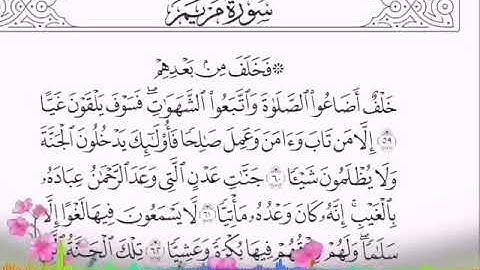 سُورَةُ مَرْيَم
۞ فَخَلَفَ مِنۢ بَعْدِهِمْ
خَلْفٌ أَضَاعُوا۟ ٱلصَّلَوٰةَ وَٱتَّبَعُوا۟ ٱلشَّهَوَٰتِ ۖ فَسَوْفَ يَلْقَوْنَ غَيًّا
٥٩ إِلَّا مَن تَابَ وَءَامَنَ وَعَمِلَ صَٰلِحًا فَأُو۟لَٰٓئِكَ يَدْخُلُونَ ٱلْجَنَّةَ
وَلَا يُظْلَمُونَ شَيْـًٔا ٦٠ جَنَّٰتِ عَدْنٍ ٱلَّتِى وَعَدَ ٱلرَّحْمَٰنُ عِبَادَهُۥ
بِٱلْغَيْبِ ۚ إِنَّهُۥ كَانَ وَعْدُهُۥ مَأْتِيًّا ٦١ لَّا يَسْمَعُونَ فِيهَا لَغْوًا إِلَّا
سَلَٰمًا ۖ وَلَهُمْ رِزْقُهُمْ فِيهَا بُكْرَةً وَعَشِيًّا ٦٢ تِلْكَ ٱلْجَنَّةُ